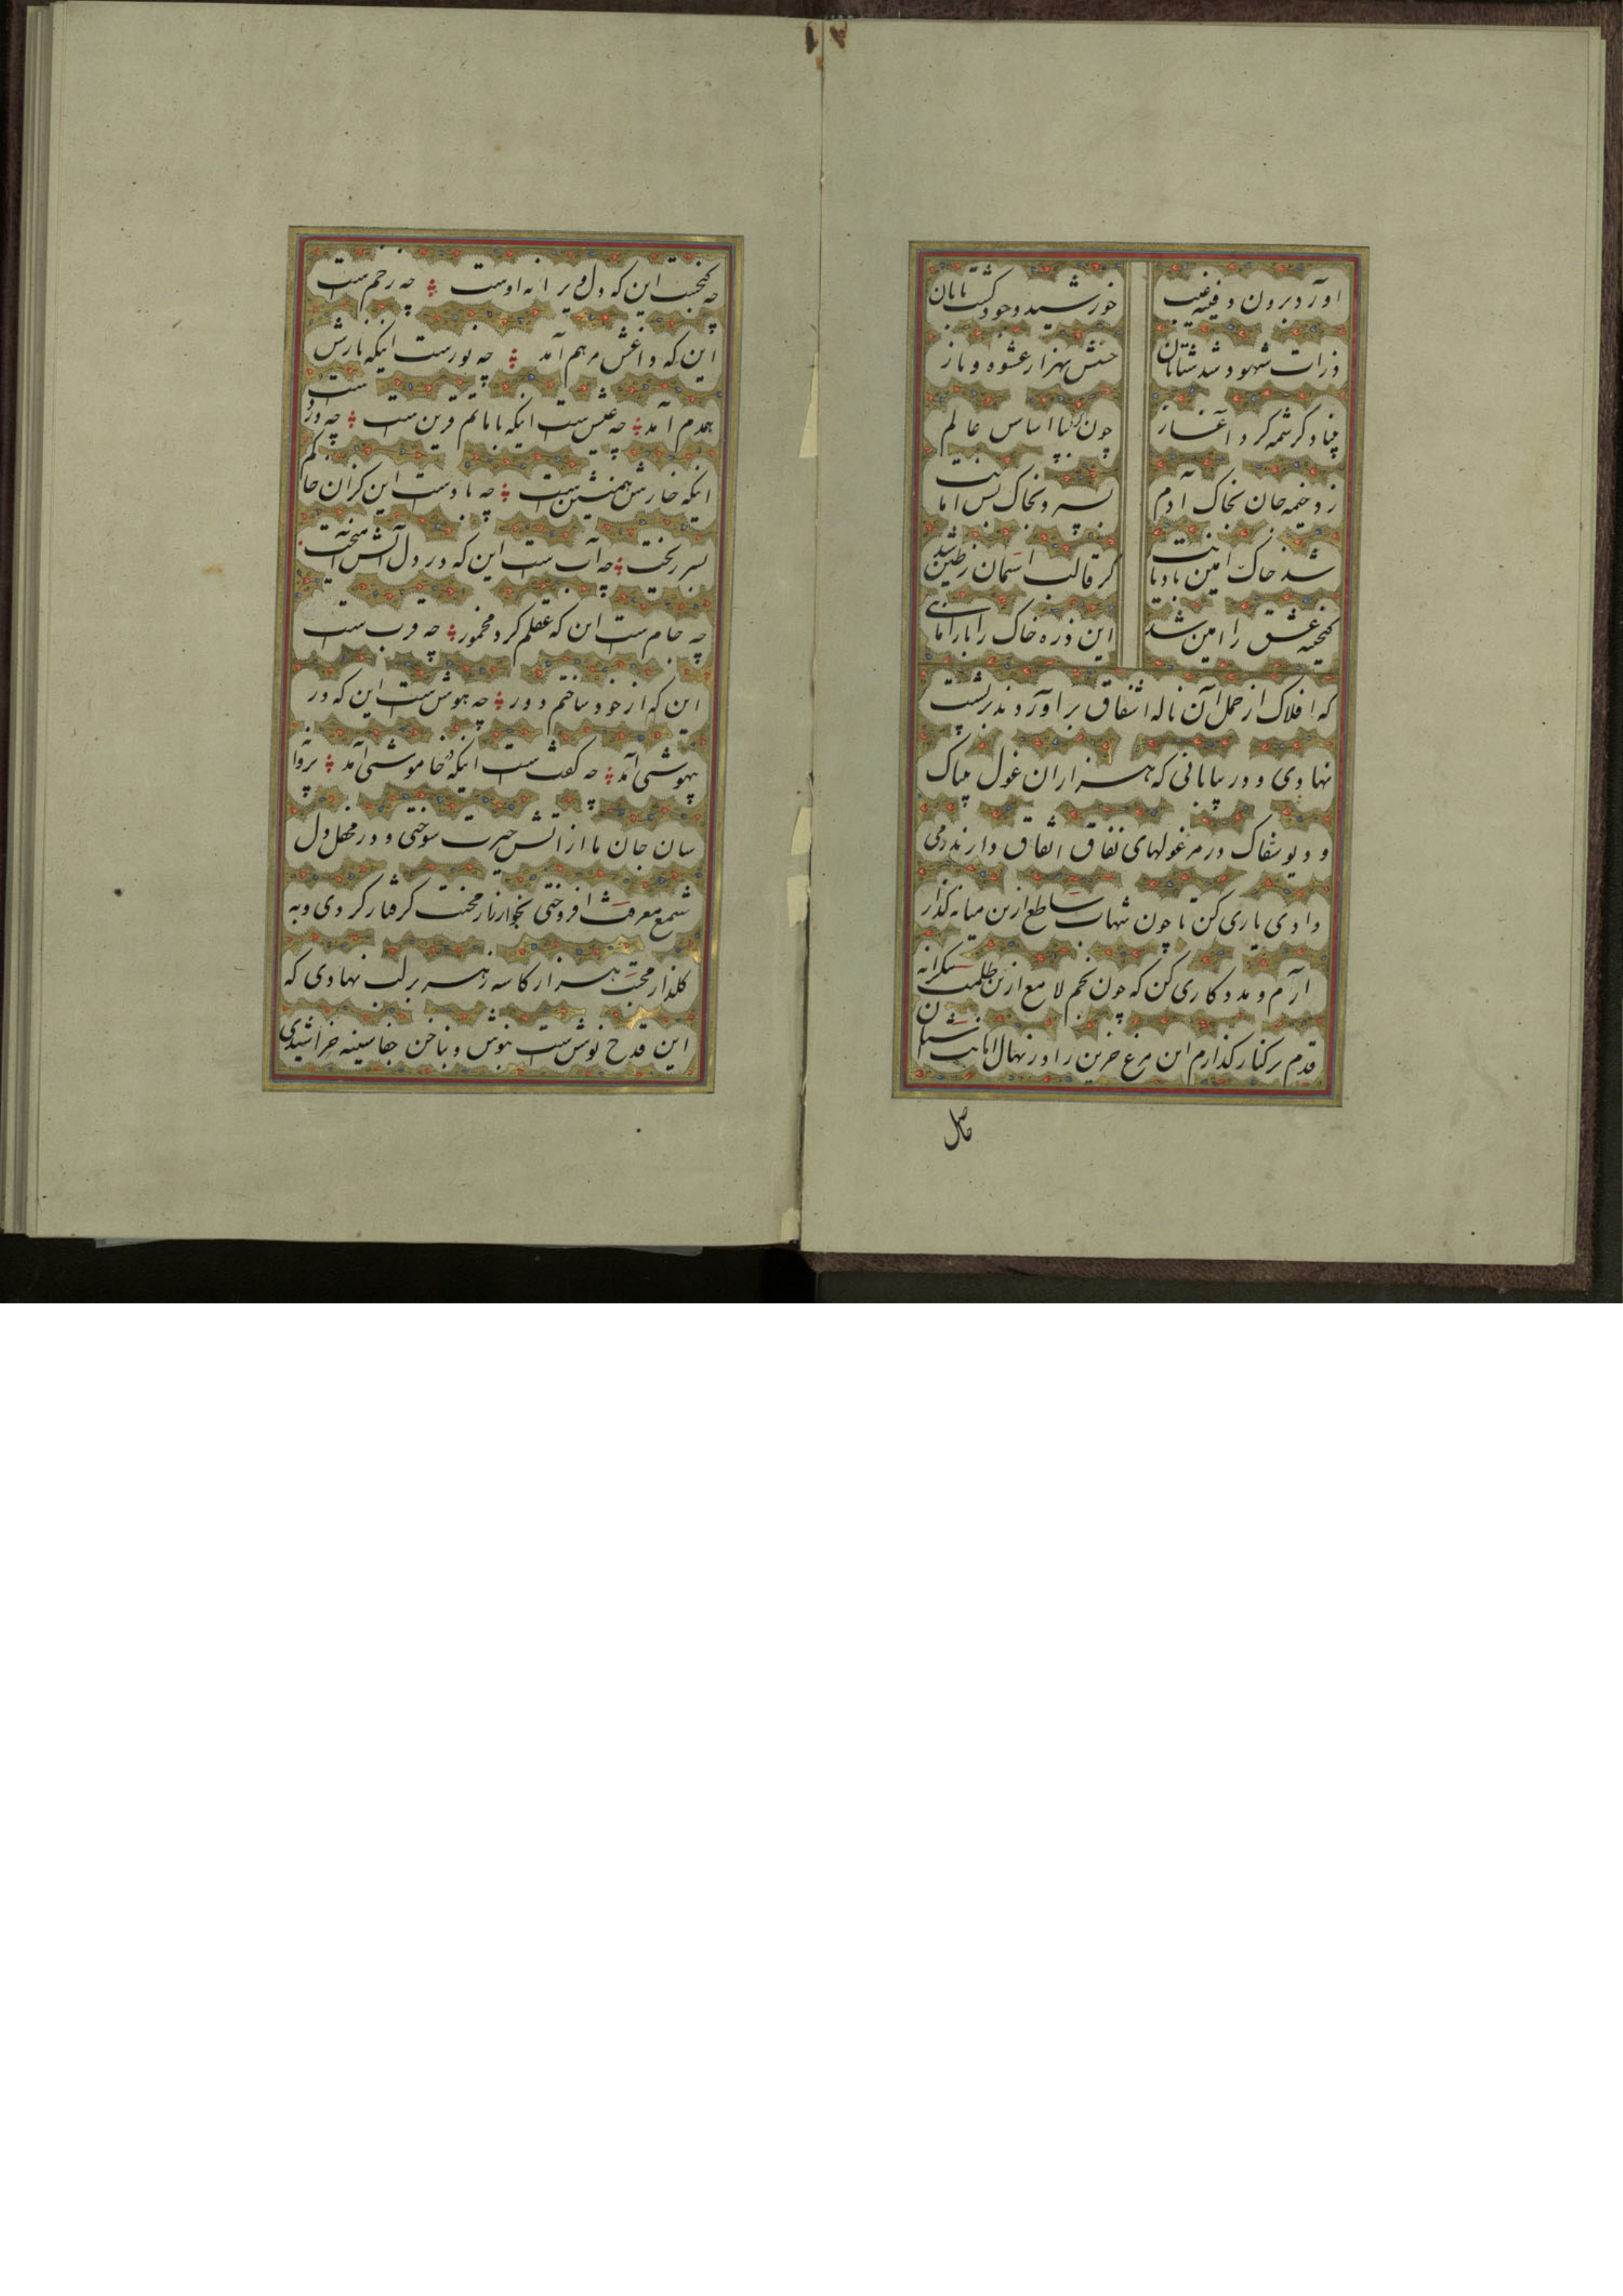 آورد برون دفینه غیب
خورشید وجود گشت تابان
ذرات شهود شد شتابان
حسنش بهزار عشوه و ناز
بنیاد کرشمه کرد آغاز
چون اساس عالم
زد خیمه جان بخاک آدم
بسپرد بخاک پس امانت
شد خاک امین با دیانت
گر قالب آسمان زطین شد
گنجینه عشق را امین شد
این ذره خاک را بار امانتی
که افلاک از حمل آن ناله اشفاق برآوردند برپشت
نهادی و در بیابانی که هزاران غول بیباک
و دیو سفاک در مرغولهای نفاق اتفاق دارند درمی
دادی یاری کن تا چون شهاب ساطع ازین میانه گذار
آرم و مددکاری کن که چون نجم لامع ازین ظلمت بیکرانه
قدم برکنار گذارم این مرغ حزین را در نهال انانیت
حاصل
چه گنجست این که دل ویرانه اوست چه زخم ست
این که داغش مرهم آمد چه نورست اینکه نارش
همدم آمد چه عیش ست اینکه با ماتم قرین ست چه وردست
اینکه خارش همنشین ست چه بادست این کزان خاکم
بسر ریخت چه آب ست این که در دل آتش آمیخت
چه جام ست این که عقلم کرد مخمور چه قرب ست
این که از خود ساختم دور چه هوش ست این که در
بیهوشی آمد چه گفت ست اینکه در خاموشی آمد پروانه
سان جان ما از آتش حیرت سوختی و در محفل دل
شمع معرفت افروختی بخارزار محنت گرفتار کردی و به
گلزار محبت هزار کاسه زهر بر لب نهادی که
این قدح نوش ست بنوش و بناخن جفا سینه خراشیدی